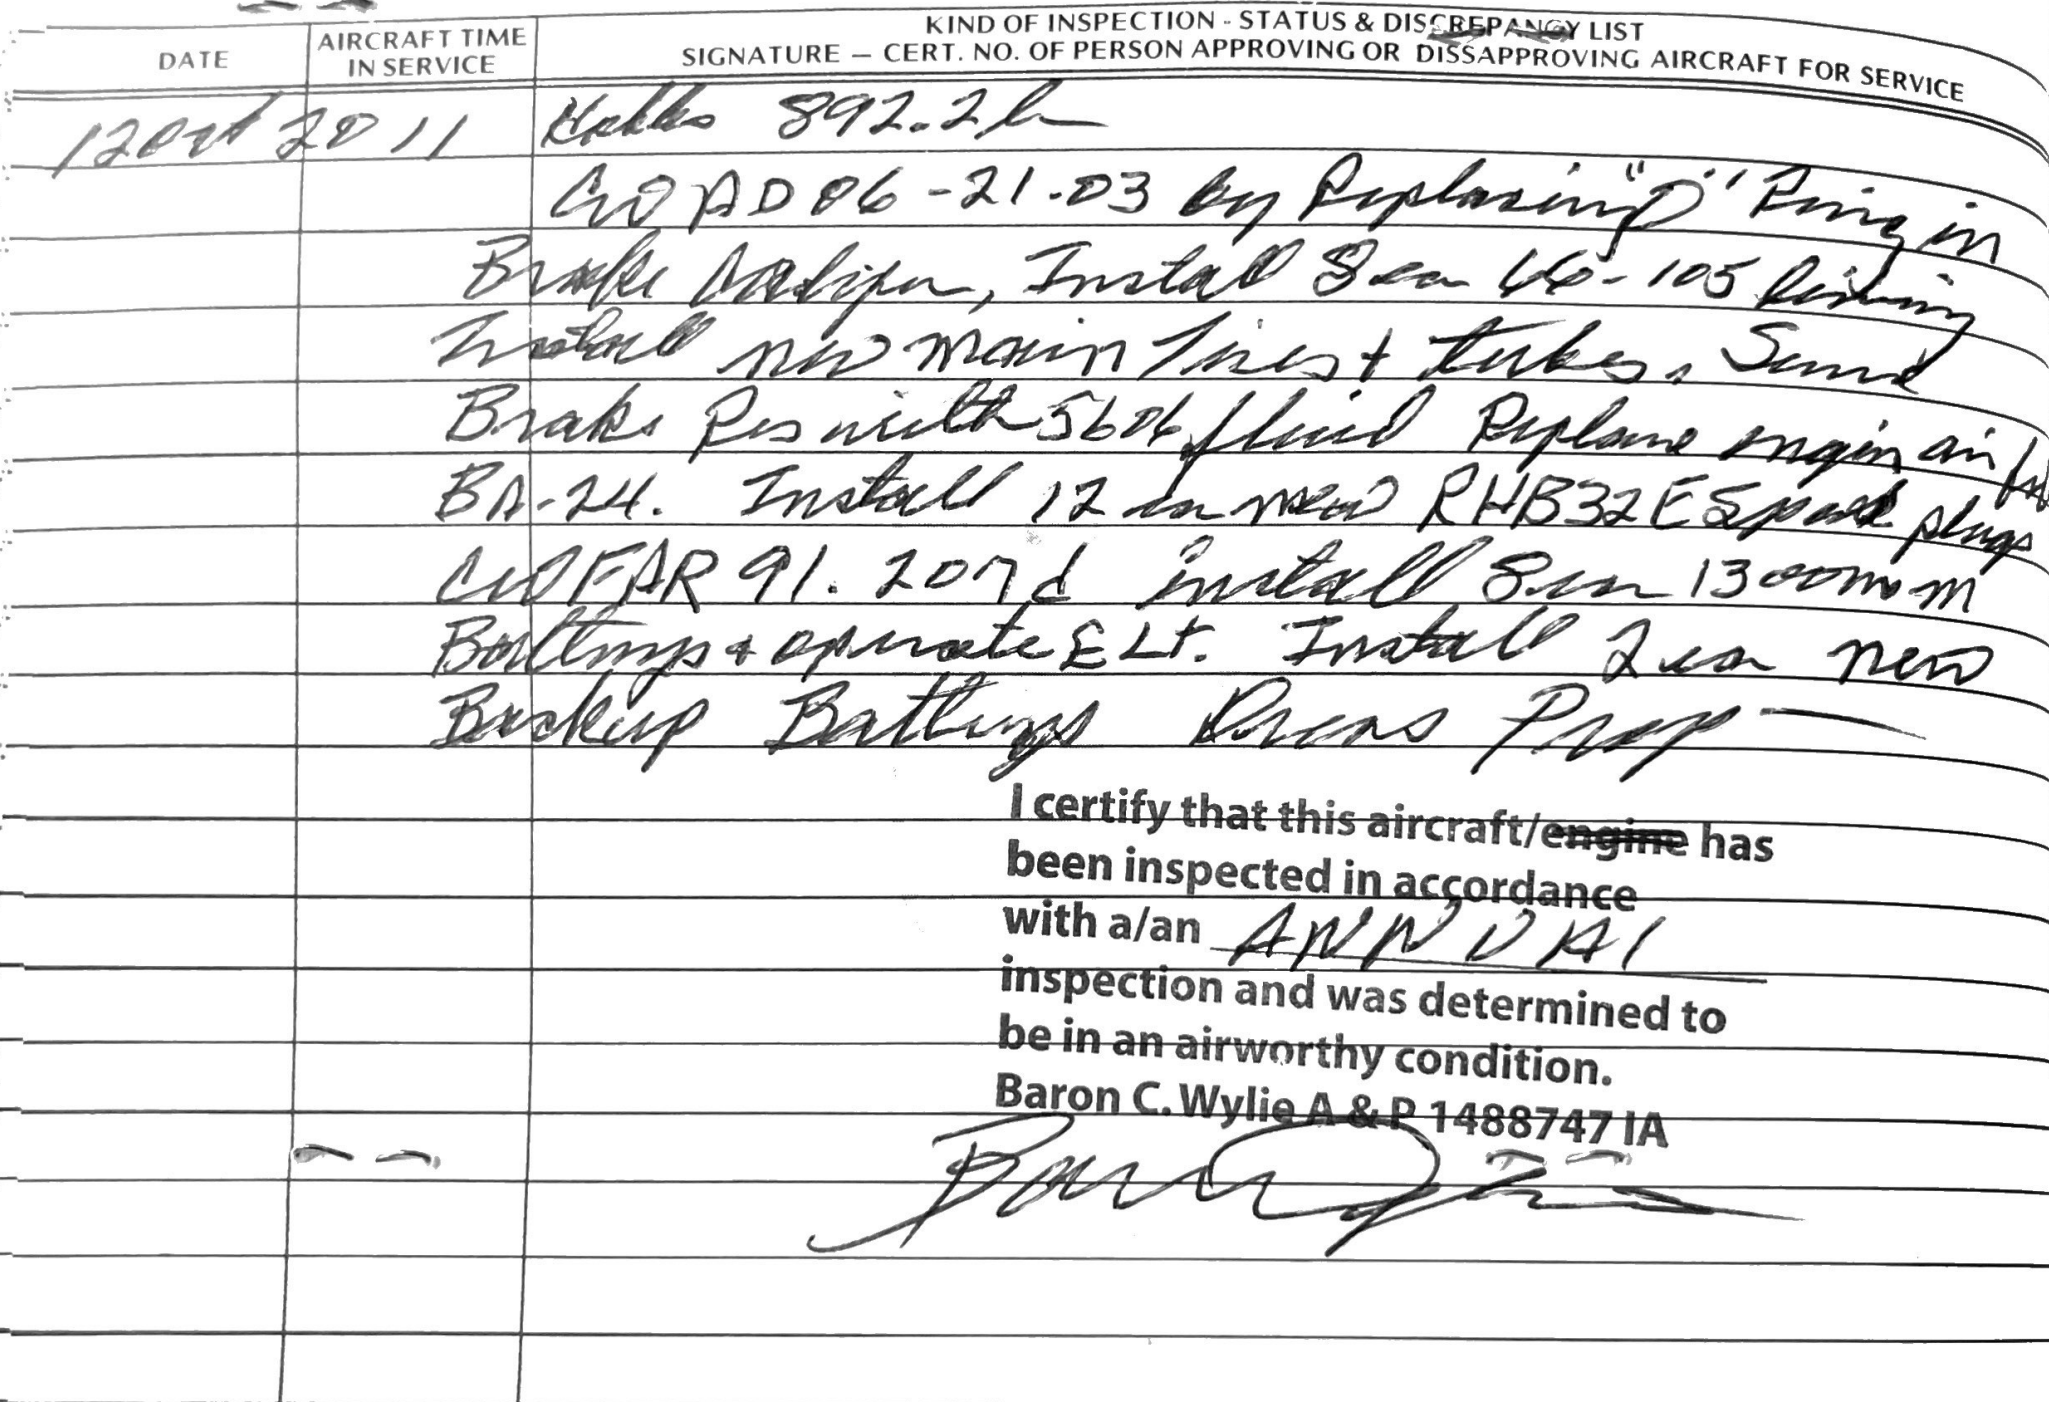 KIND OF INSPECTION - STATUS & DISCREPANCY LIST
DATE AIRCRAFT TIME IN SERVICE SIGNATURE — CERT. NO. OF PERSON APPROVING OR DISSAPPROVING AIRCRAFT FOR SERVICE
12 Oct 2011 Hobbs 892.2
C/W AD 06-21-03 by Replacing "O" Ring in
Brake Caliper, Install 8 ea 66-105 lining
Install new main Tires + tubes.
Brake Res with 5606 fluid Replace engin air
BA-24. Install 12 ea new RHB32E Spark plugs
C/W FAR 91.207d install 8 ea 1300
Batterys + operate ELT. Install 2 ea new
Backup Batterys Dress Prop
I certify that this aircraft/engine has
been inspected in accordance
with a/an ANNUAL
inspection and was determined to
be in an airworthy condition.
Baron C. Wylie A & P 1488747 IA